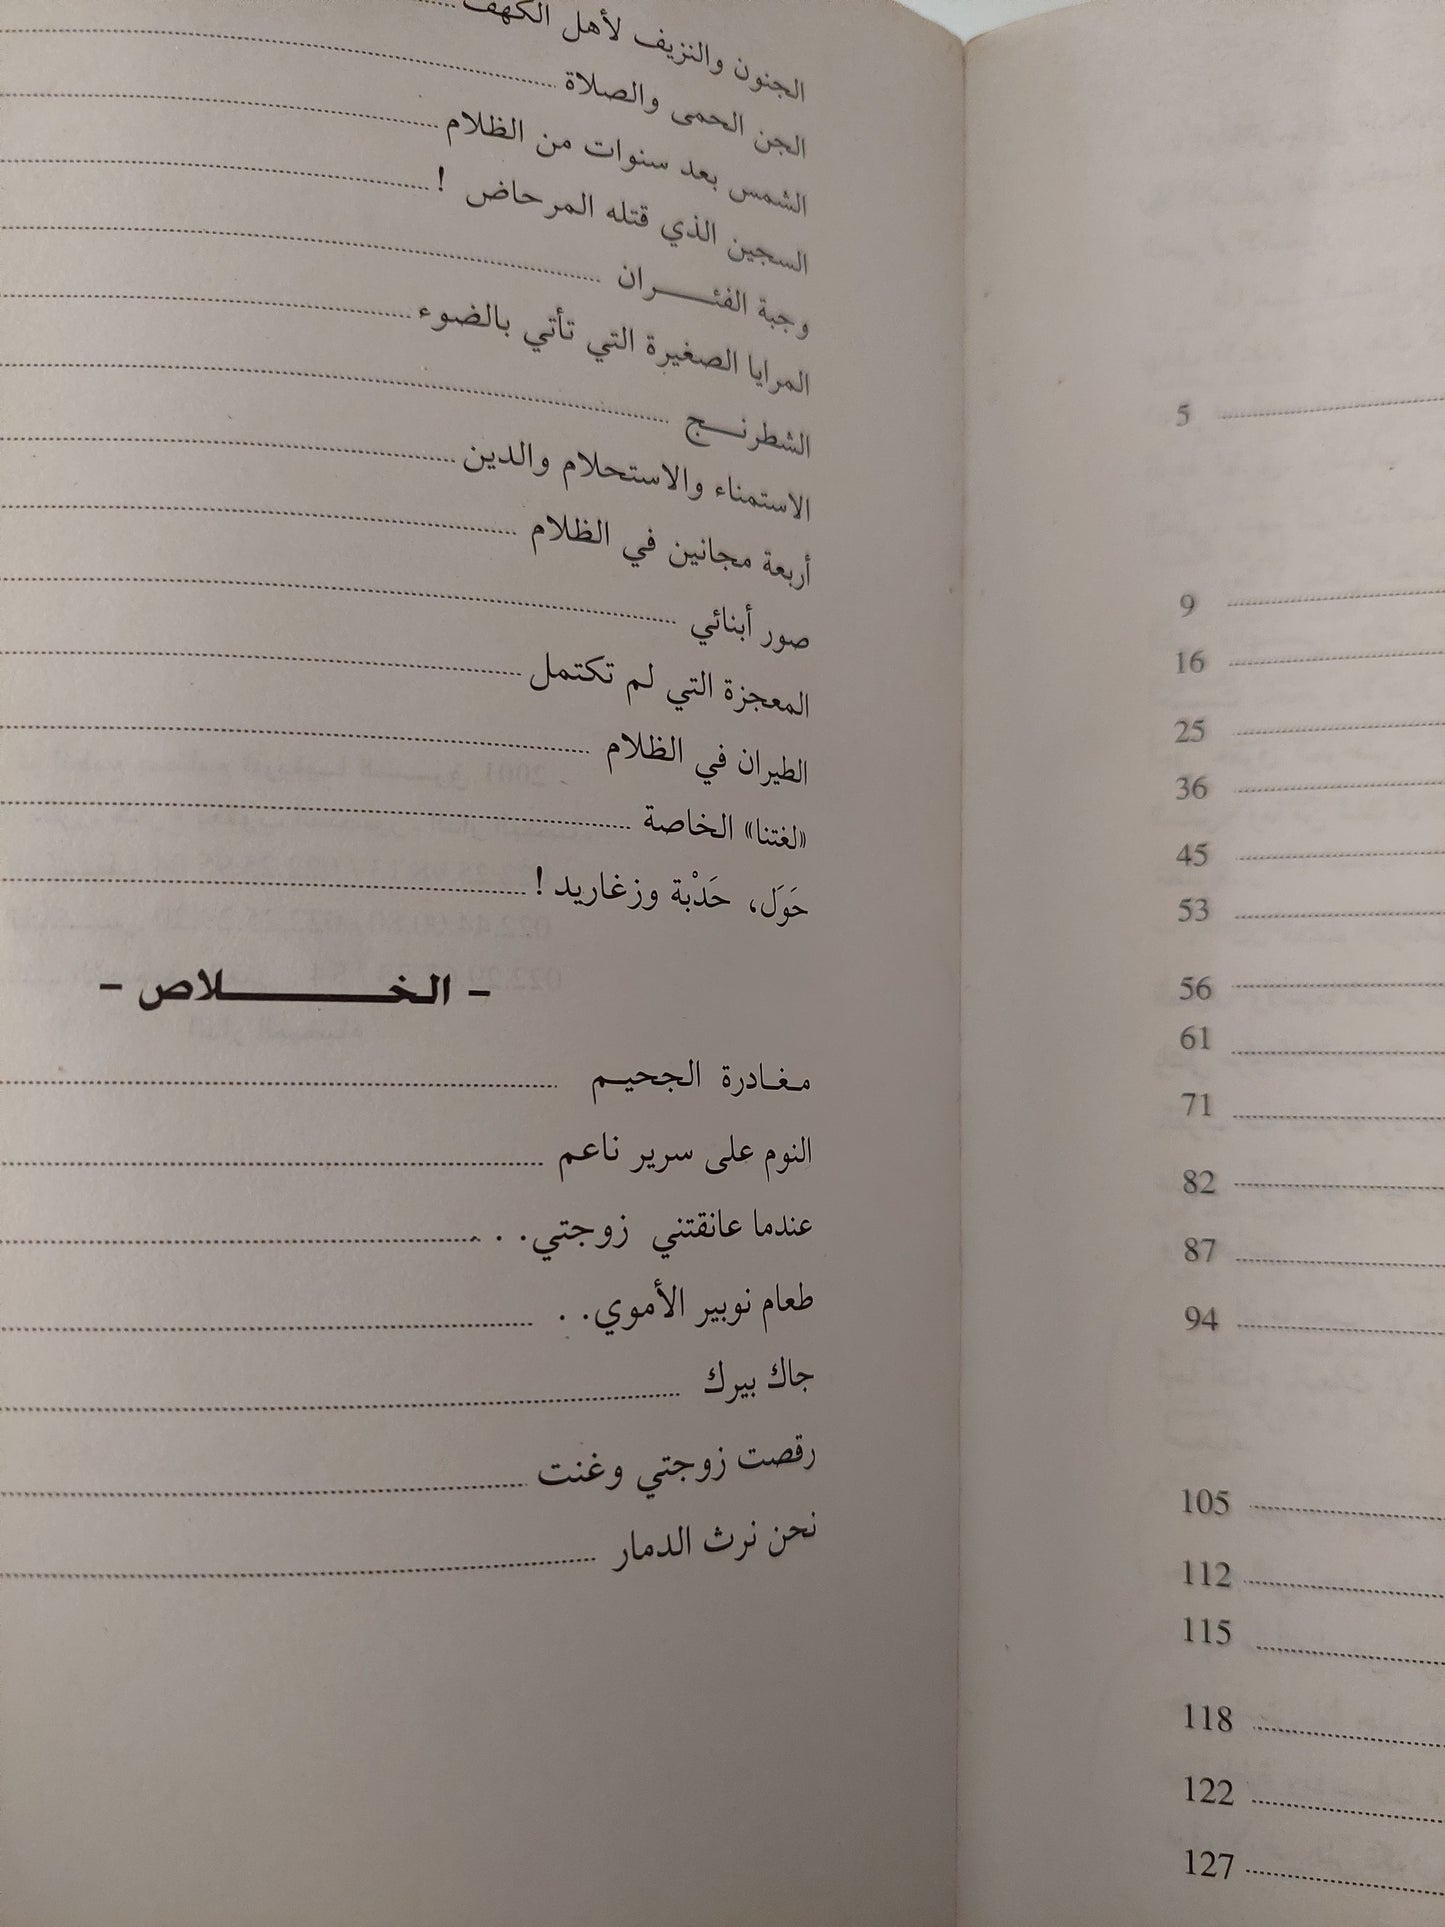 الجنون والنزيف لأهل الكهف
الجن الحمى والصلاة
الشمس بعد سنوات من الظلام
السجين الذي قتله المرحاض !
وجبة الفئران
المرايا الصغيرة التي تأتي بالضوء
الشطرنج
الاستمناء والاستحلام والدين
أربعة مجانين في الظلام
صور أبنائي
المعجزة التي لم تكتمل
الطيران في الظلام
«لغتنا» الخاصة
حَوَل، حَدْبة وزغاريد !
- الخلاص -
مغادرة الجحيم
النوم على سرير ناعم
عندما عانقتني زوجتي. . .
طعام نوبير الأموي. .
جاك بيرك
رقصت زوجتي وغنت
نحن نرث الدمار
5
9
16
25
36
45
53
56
61
71
82
87
94
105
112
115
118
122
127